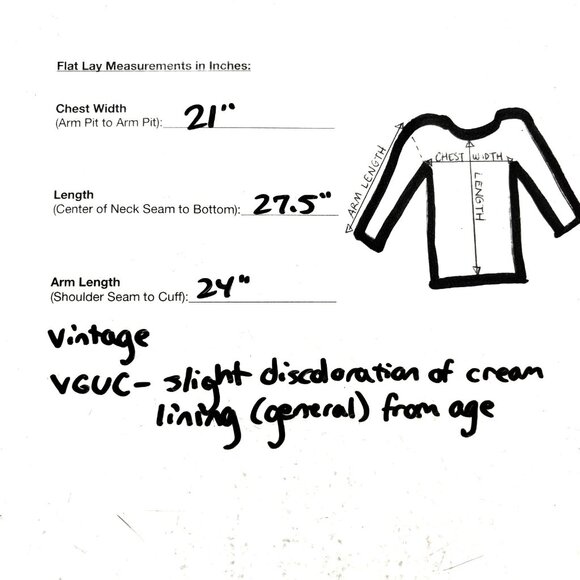 Flat Lay Measurements in Inches:
Chest Width
(Arm Pit to Arm Pit): 21"
Length
(Center of Neck Seam to Bottom): 27.5"
Arm Length
(Shoulder Seam to Cuff): 24"
ARM LENGTH
CHEST WIDTH
LENGTH
Vintage
VGUC- slight discoloration of cream
lining (general) from age